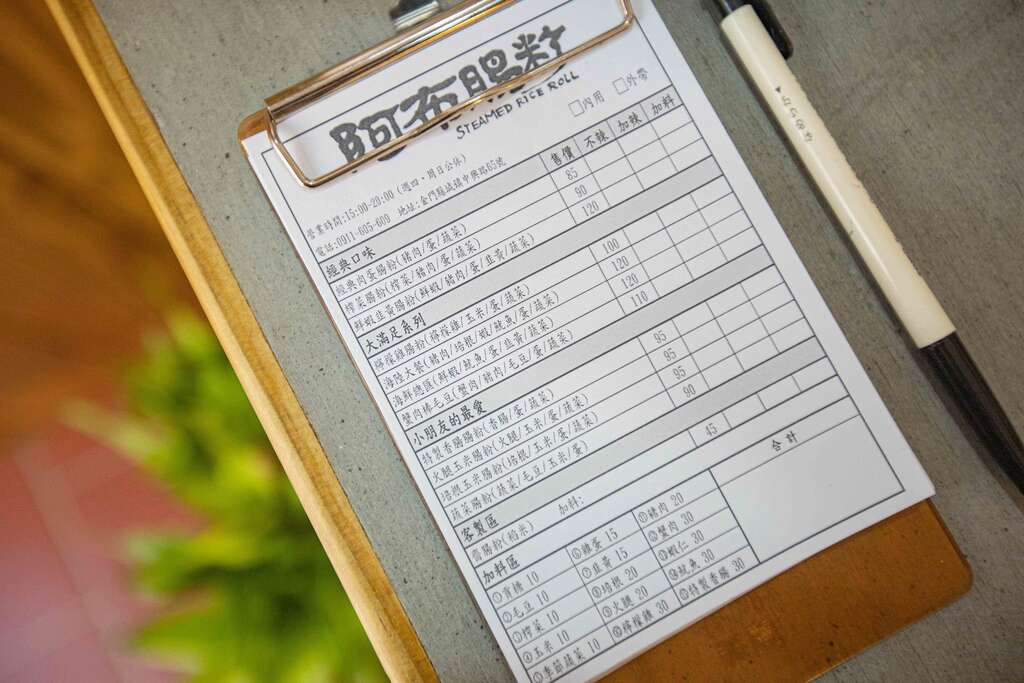 阿布腸粉
STEAMED RICE ROLL
□內用 □外帶
營業時間:15:00-20:00 (週四、周日公休)
電話:0911-605-609 地址:金門縣城鎮中興路65號
售價 不辣 加辣 加料
經典口味
經典肉蛋腸粉(豬肉/蛋/蔬菜) 85
榨菜腸粉(榨菜/豬肉/蛋/蔬菜) 90
鮮蝦韭黃腸粉(鮮蝦/豬肉/蛋/韭黃/蔬菜) 120
大滿足系列
檸檬雞腸粉(檸檬雞/玉米/蛋/蔬菜) 100
海陸大餐(豬肉/培根/蝦/魷魚/蛋/蔬菜) 120
海鮮總匯(鮮蝦/魷魚/蛋/韭黃/蔬菜) 120
蟹肉棒毛豆(蟹肉/豬肉/毛豆/蛋/蔬菜) 110
小朋友的最愛
特製香腸腸粉(香腸/蛋/蔬菜) 95
火腿玉米腸粉(火腿/玉米/蛋/蔬菜) 95
培根玉米腸粉(培根/玉米/蛋/蔬菜) 95
蔬菜腸粉(蔬菜/毛豆/玉米/蛋) 90
客製區
齋腸粉(稻米) 加料: 45
加料區
合計
①脊糖 10
②毛豆 10
③榨菜 10
④玉米 10
⑤季節蔬菜 10
⑥雞蛋 15
⑦韭黃 15
⑧培根 20
⑨火腿 20
⑩檸檬雞 30
⑪豬肉 20
⑫蟹肉 30
⑬蝦仁 30
⑭魷魚 30
⑮特製香腸 30